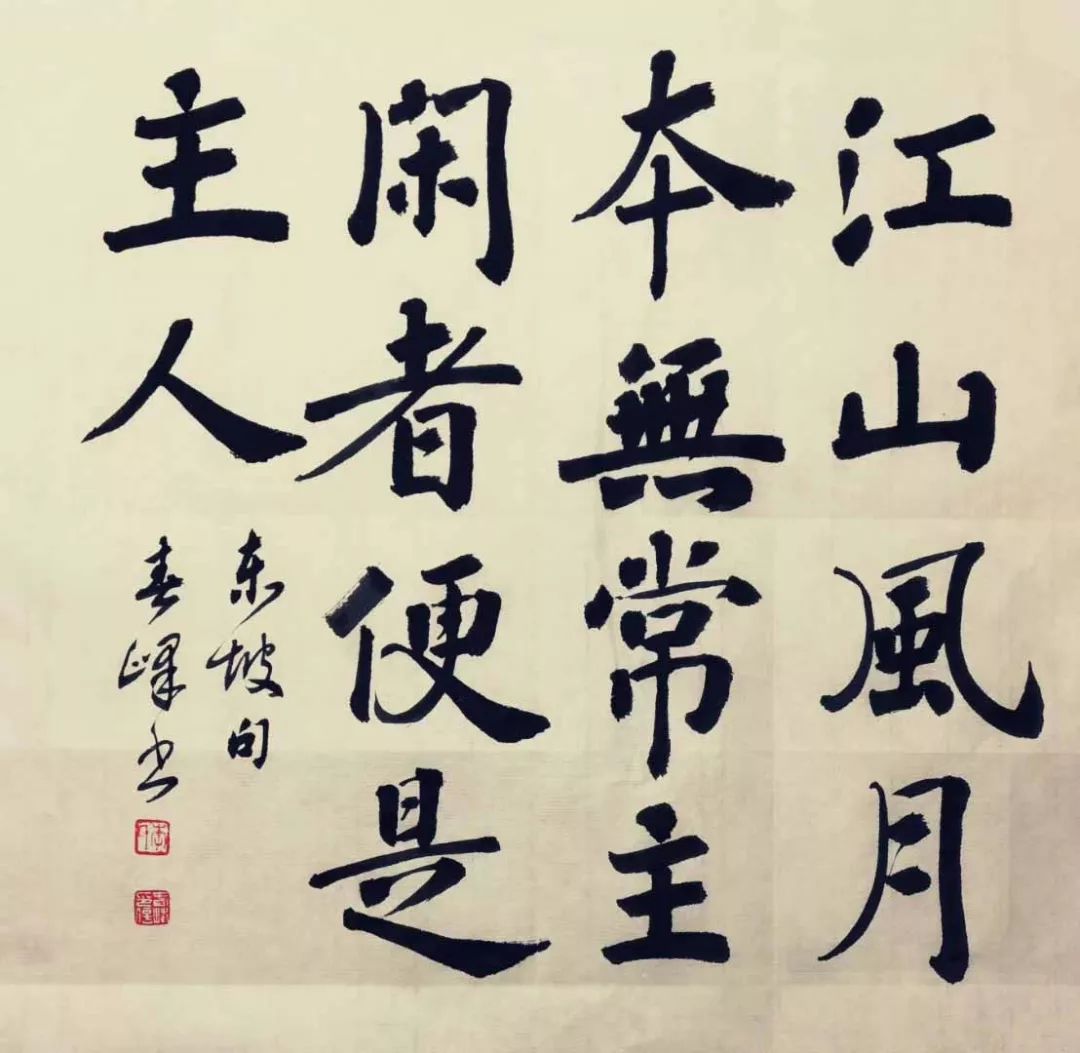 江山風月
本無常主
閑者便是
主人
东坡句
春峰书